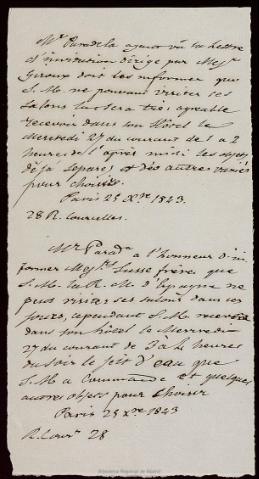 Mr Paradela ayant vû la lettre
d'invitation dirigé par Mrs
Giroux doit les informer que
S. M. ne pouvant visiter ses
salons lui sera très agreable
recevoir dans son Hôtel le
mercredi 27 du courant de 1 a 2
heures de l'après midi les objets
déja separés et des autres variés
pour choisir.
Paris 25 Xre 1843.
28 R. Courcelles.
Mr Parada a l'honneur d'in
former Mrs Susse frères que
S. M. la R. M. d'Espagne ne
peut visiter ses salons dans ces
jours, cependant S. M. recevra
dans son hôtel le Mercredi
27 du courant de 3 à 4 heures
du soir le jet d'eau que
S. M. a Commandé et quelques
autres objets pour choisir
Paris 25 Xre 1843
R. Cour. 28
Biblioteca Regional de Madrid